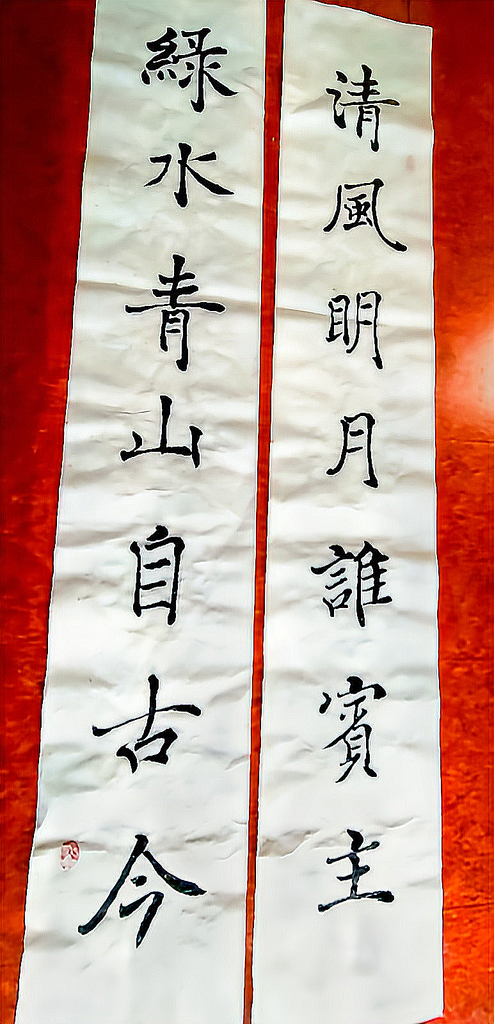 请風明月誰賓主
綠水青山自古今